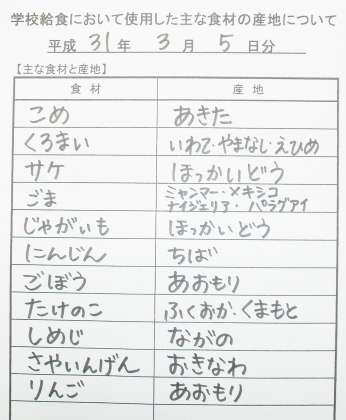 学校給食において使用した主な食材の産地について
平成 31 年 3 月 5 日分
【主な食材と産地】
食材 産地
こめ あきた
くろまい いわて・やまなし・えひめ
サケ ほっかいどう
ごま ミャンマー・メキシコ
ナイジェリア・パラグアイ
じゃがいも ほっかいどう
にんじん ちば
ごぼう あおもり
たけのこ ふくおか・くまもと
しめじ ながの
さやいんげん おきなわ
りんご あおもり